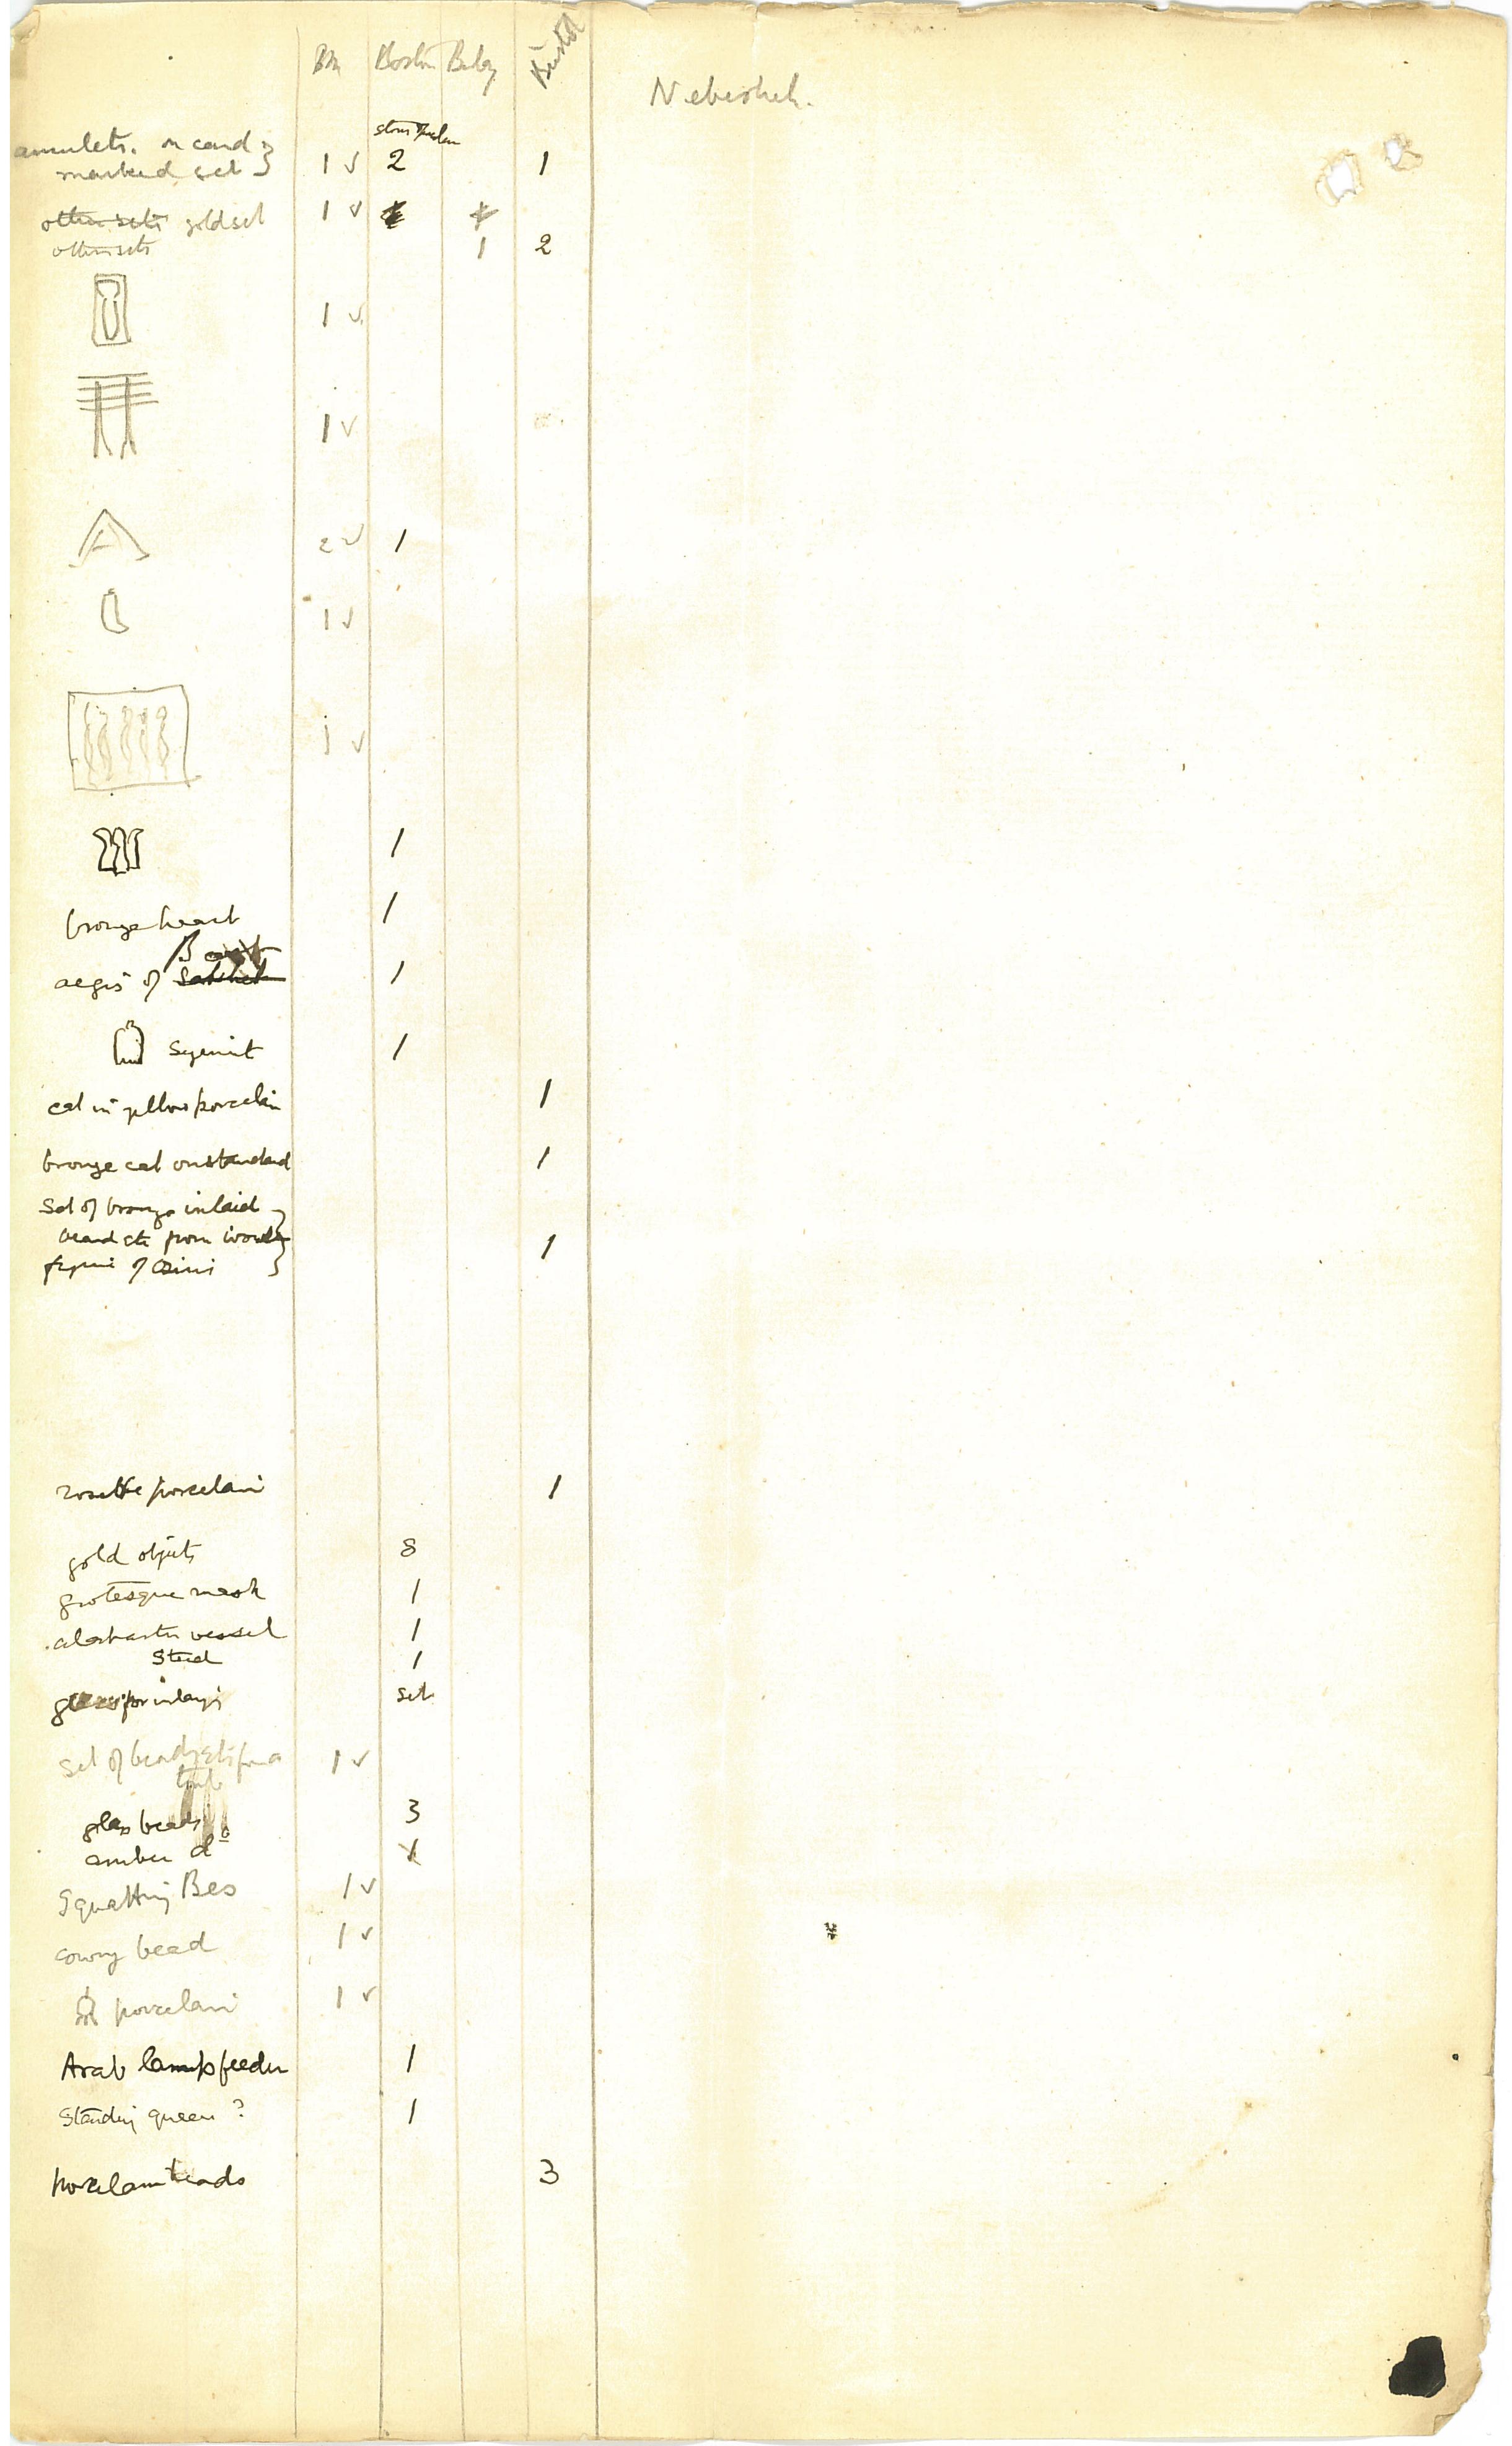 BM Boston Bristol
Nebesheh.
stone
amulets. on card }
marked set } 1 ✓ 2 1
other sets gold set 1 ✓
other sets 1 2
1 ✓
1 ✓
2 ✓ 1
1 ✓
1 ✓
1
bronze heart 1
Bast
aegis of Sakhet 1
Syenite 1
cat in yellow porcelain 1
bronze cat on standard 1
Set of bronze inlaid }
beard etc from wooden } 1
figure of Osiris }
rosette porcelain 1
gold objects 8
grotesque mask 1
alabaster vessel 1
Stud 1
glass for inlaying set
Set of beads etc from a 1 ✓
tomb
glass beads 3
amber do 1
Squatting Bes 1 ✓
cowry bead 1 ✓
porcelain 1 ✓
Arab lamp feeder 1
Standing queen ? 1
porcelain beads 3